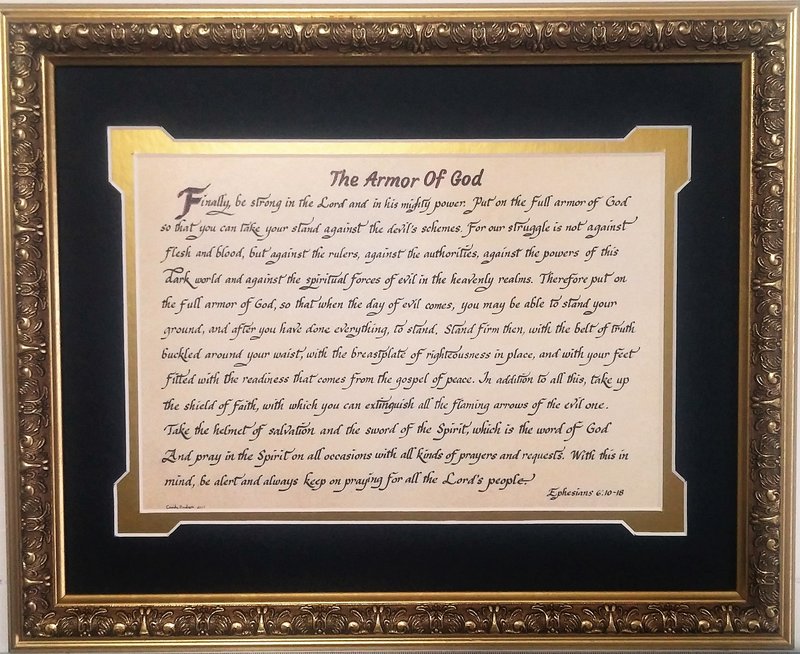 The Armor Of God
Finally, be strong in the Lord and in his mighty power. Put on the full armor of God
so that you can take your stand against the devil's schemes. For our struggle is not against
flesh and blood, but against the rulers, against the authorities, against the powers of this
dark world and against the spiritual forces of evil in the heavenly realms. Therefore put on
the full armor of God, so that when the day of evil comes, you may be able to stand your
ground, and after you have done everything, to stand. Stand firm then, with the belt of truth
buckled around your waist, with the breastplate of righteousness in place, and with your feet
fitted with the readiness that comes from the gospel of peace. In addition to all this, take up
the shield of faith, with which you can extinguish all the flaming arrows of the evil one.
Take the helmet of salvation and the sword of the Spirit, which is the word of God
And pray in the Spirit on all occasions with all kinds of prayers and requests. With this in
mind, be alert and always keep on praying for all the Lord's people.
Ephesians 6:10-18